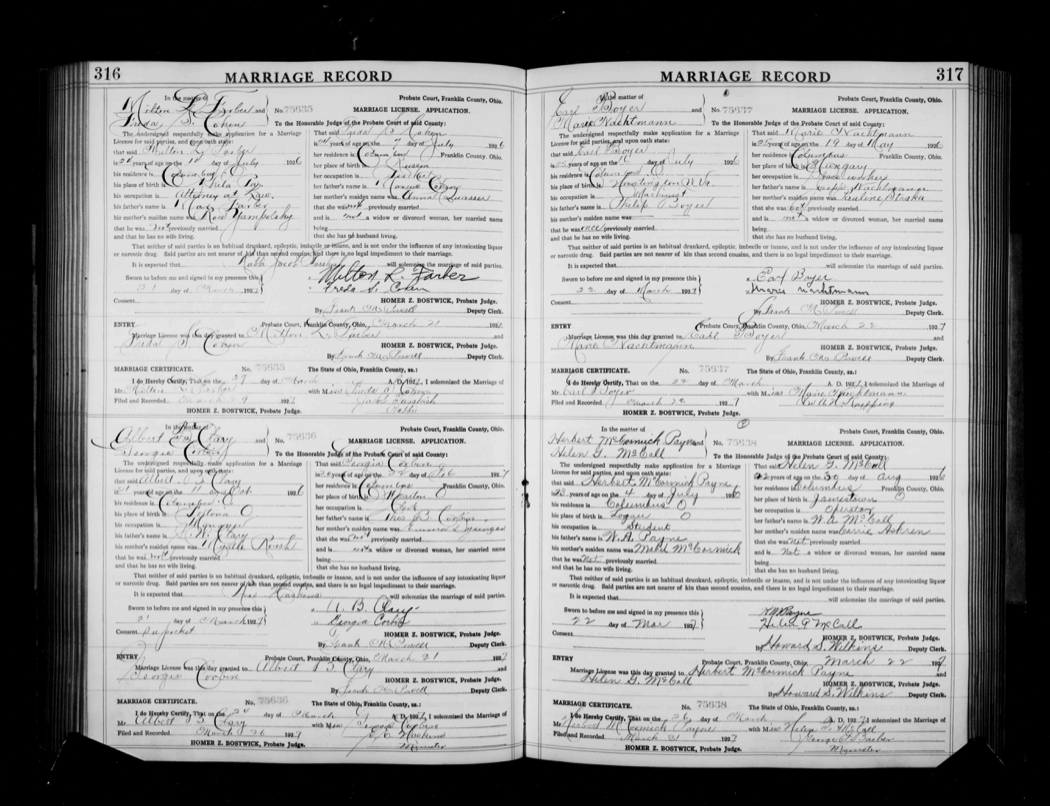 316
MARRIAGE RECORD
In the matter of
Probate Court, Franklin County, Ohio.
Milton L. Farber and
No. 75635
MARRIAGE LICENSE. APPLICATION.
Freda S. Cohen
To the Honorable Judge of the Probate Court of said County:
The undersigned respectfully make application for a Marriage
License for said parties, and upon oath state:
that said Milton L. Farber
years of age on the day of July 1936
his residence is Columbus O
his place of birth is Phila Pa.
his occupation is Attorney at Law
his father's name is Max Farber
his mother's maiden name was Rose Yampolsky
that he was not previously married
and that he has no wife living.
That said Freda S. Cohen
years of age on the 7 day of July 1936
her residence is Columbus Franklin County, Ohio.
her place of birth is Russia
her occupation is
her father's name is
her mother's maiden name was Anna
that she was not previously married
and is not a widow or divorced woman, her married name
being
that she has no husband living.
That neither of said parties is an habitual drunkard, epileptic, imbecile or insane, and is not under the influence of any intoxicating liquor
or narcotic drug. Said parties are not nearer of kin than second cousins, and there is no legal impediment to their marriage.
It is expected that Rabbi Jacob will solemnize the marriage of said parties.
Sworn to before me and signed in my presence this
Milton L. Farber
21 day of March 1937
Freda S. Cohen
HOMER Z. BOSTWICK, Probate Judge.
Consent
By Deputy Clerk.
ENTRY
Probate Court, Franklin County, Ohio, March 21 1937
Marriage License was this day granted to Milton L. Farber and
Freda S. Cohen
HOMER Z. BOSTWICK, Probate Judge.
By Deputy Clerk.
MARRIAGE CERTIFICATE.
No. 75635
The State of Ohio, Franklin County, ss.:
I do Hereby Certify, That on the day of March A. D. 1937, I solemnized the Marriage of
Mr. Milton L. Farber with Miss Freda S. Cohen
Filed and Recorded March 1937
HOMER Z. BOSTWICK, Probate Judge.
Rabbi
In the matter of
Probate Court, Franklin County, Ohio.
Albert B. Clary and
No. 75636
MARRIAGE LICENSE. APPLICATION.
Georgia Corbin
To the Honorable Judge of the Probate Court of said County:
The undersigned respectfully make application for a Marriage
License for said parties, and upon oath state:
that said Albert B. Clary
21 years of age on the 11 day of Oct. 1936
his residence is Columbus O
his place of birth is O
his occupation is
his father's name is W. Clary
his mother's maiden name was Myrtle
that he was not previously married
and that he has no wife living.
That said Georgia Corbin
years of age on the 22 day of Feb 1937
her residence is Columbus Franklin County, Ohio.
her place of birth is O
her occupation is
her father's name is Corbin
her mother's maiden name was
that she was not previously married
and is not a widow or divorced woman, her married name
being
that she has no husband living.
That neither of said parties is an habitual drunkard, epileptic, imbecile or insane, and is not under the influence of any intoxicating liquor
or narcotic drug. Said parties are not nearer of kin than second cousins, and there is no legal impediment to their marriage.
It is expected that will solemnize the marriage of said parties.
Sworn to before me and signed in my presence this
A. B. Clary
21 day of March 1937
Georgia Corbin
HOMER Z. BOSTWICK, Probate Judge.
Consent
By Deputy Clerk.
ENTRY
Probate Court, Franklin County, Ohio, March 21 1937
Marriage License was this day granted to Albert B. Clary and
Georgia Corbin
HOMER Z. BOSTWICK, Probate Judge.
By Deputy Clerk.
MARRIAGE CERTIFICATE.
No. 75636
The State of Ohio, Franklin County, ss.:
I do Hereby Certify, That on the 24 day of March A. D. 1937, I solemnized the Marriage of
Mr. Albert B. Clary with Miss Georgia Corbin
Filed and Recorded March 26 1937
HOMER Z. BOSTWICK, Probate Judge.
Minister
MARRIAGE RECORD
317
In the matter of
Probate Court, Franklin County, Ohio.
Earl Boyer and
No. 75637
MARRIAGE LICENSE. APPLICATION.
Marie Nachtmann
To the Honorable Judge of the Probate Court of said County:
The undersigned respectfully make application for a Marriage
License for said parties, and upon oath state:
that said Earl Boyer
years of age on the day of July 1936
his residence is Columbus O
his place of birth is Huntington W. Va.
his occupation is Machinist
his father's name is Philip Boyer
his mother's maiden name was
that he was once previously married
and that he has no wife living.
That said Marie Nachtmann
years of age on the 19 day of May 1936
her residence is Columbus Franklin County, Ohio.
her place of birth is Hungary
her occupation is
her father's name is Nachtmann
her mother's maiden name was Pauline Straka
that she was not previously married
and is not a widow or divorced woman, her married name
being
that she has no husband living.
That neither of said parties is an habitual drunkard, epileptic, imbecile or insane, and is not under the influence of any intoxicating liquor
or narcotic drug. Said parties are not nearer of kin than second cousins, and there is no legal impediment to their marriage.
It is expected that will solemnize the marriage of said parties.
Sworn to before me and signed in my presence this
Earl Boyer
22 day of March 1937
Marie Nachtmann
HOMER Z. BOSTWICK, Probate Judge.
Consent
By Deputy Clerk.
ENTRY
Probate Court, Franklin County, Ohio, March 22 1937
Marriage License was this day granted to Earl Boyer and
Marie Nachtmann
HOMER Z. BOSTWICK, Probate Judge.
By Deputy Clerk.
MARRIAGE CERTIFICATE.
No. 75637
The State of Ohio, Franklin County, ss.:
I do Hereby Certify, That on the 22 day of March A. D. 1937, I solemnized the Marriage of
Mr. Earl Boyer with Miss Marie Nachtmann
Filed and Recorded March 1937
HOMER Z. BOSTWICK, Probate Judge.
In the matter of
Probate Court, Franklin County, Ohio.
Herbert McCormick Payne and
No. 75638
MARRIAGE LICENSE. APPLICATION.
Helen G. McCall
To the Honorable Judge of the Probate Court of said County:
The undersigned respectfully make application for a Marriage
License for said parties, and upon oath state:
that said Herbert McCormick Payne
23 years of age on the 4 day of July 1936
his residence is Columbus O
his place of birth is Logan O
his occupation is Student
his father's name is W. A. Payne
his mother's maiden name was McCormick
that he was Not previously married
and that he has no wife living.
That said Helen G. McCall
22 years of age on the 30 day of Aug 1936
her residence is Columbus Franklin County, Ohio.
her place of birth is Jamestown O
her occupation is Operator
her father's name is W. A. McCall
her mother's maiden name was Carrie
that she was Not previously married
and is Not a widow or divorced woman, her married name
being
that she has no husband living.
That neither of said parties is an habitual drunkard, epileptic, imbecile or insane, and is not under the influence of any intoxicating liquor
or narcotic drug. Said parties are not nearer of kin than second cousins, and there is no legal impediment to their marriage.
It is expected that will solemnize the marriage of said parties.
Sworn to before me and signed in my presence this
H M Payne
22 day of Mar 1937
Helen G McCall
HOMER Z. BOSTWICK, Probate Judge.
Consent
By Howard S. Wilkins Deputy Clerk.
ENTRY
Probate Court, Franklin County, Ohio, March 22 1937
Marriage License was this day granted to Herbert McCormick Payne and
Helen G. McCall
HOMER Z. BOSTWICK, Probate Judge.
By Howard S. Wilkins Deputy Clerk.
MARRIAGE CERTIFICATE.
No. 75638
The State of Ohio, Franklin County, ss.:
I do Hereby Certify, That on the 26 day of March A. D. 1937, I solemnized the Marriage of
Mr. Herbert McCormick Payne with Miss Helen G. McCall
Filed and Recorded March 31 1937
HOMER Z. BOSTWICK, Probate Judge.
Minister